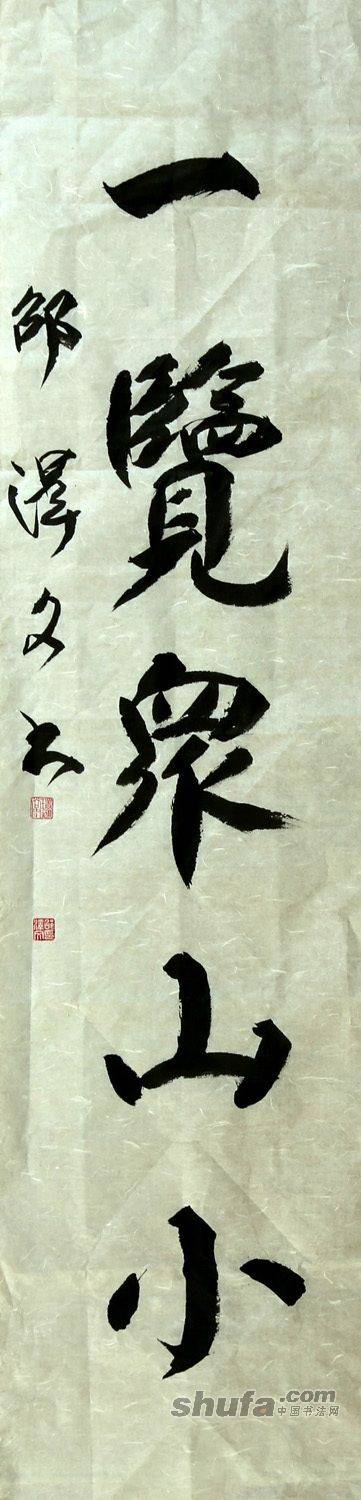 一覽眾山小
邵澤文书
shufa.com
中国书法网